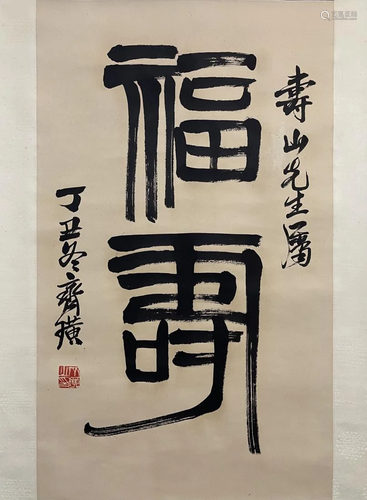 壽山先生屬
福壽
丁丑冬齊璜